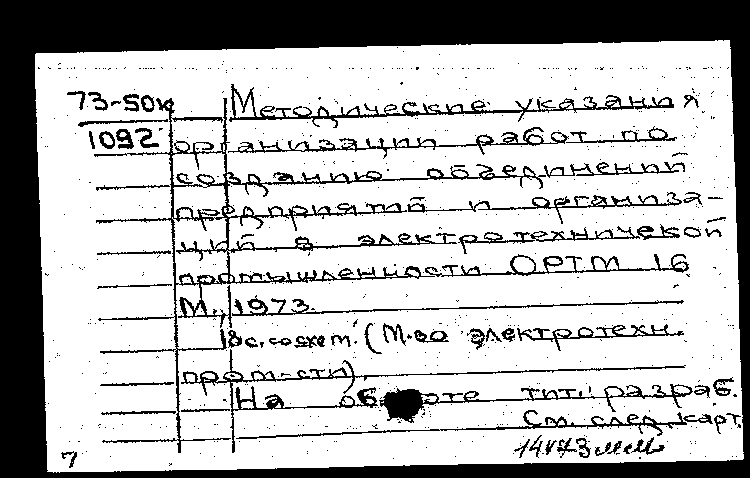 73-50к Методические указания
1092 организации работ по
созданию объединений
предприятий и организа-
ций в электротехнической
промышленности ОРТМ 16
М., 1973.
18 с. со схем. (М-во электротехн.
пром-сти).
На об те тит. разраб.
См. след. карт.
7